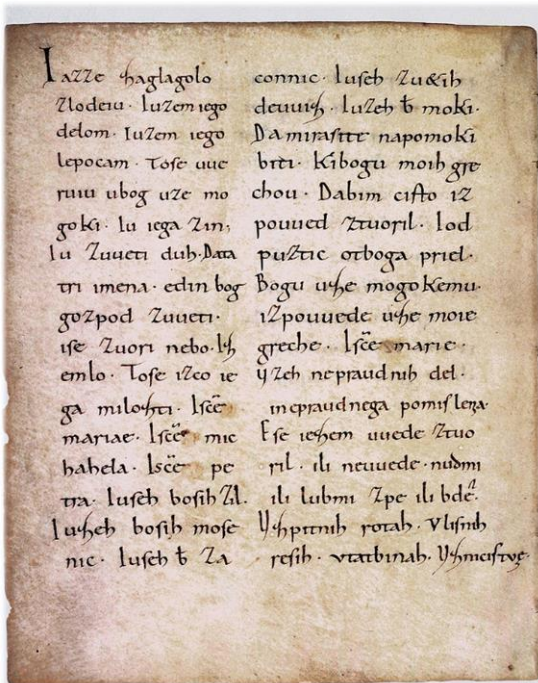 Iazze zaglagolo
zlodeiu. Iuzem iego
delom. Iuzem iego
lepocam. Tose uue
ruiu ubog uze mo
goki. Iu iega zin,
Iu zuueti duh. Data
tri imena. edin bog
gozpod zuueti.
ise zuori nebo. Iz
emlo. Tose izco ie
ga milozti. Isc̄e
mariae. Isc̄e mic
hahela. Isc̄e pe
tra. Iuseh bosih zil.
Iuzeh bosih mose
nic. Iuseh b̄ za
connic. Iuseh zu&ih
deuuiz. Iuzeh b̄ moki.
Da mirasite napomoki
biti. Kibogu moih gre
chou. Dabim cisto iz
pouued ztuoril. Iod
puztic otboga priel.
Bogu uze mogokemu.
izpouuede uze moie
greche. Isc̄e marie.
uzeh nepraudnih del.
inepraudnega pomislena.
Ese iezem uuede ztuo
ril. ili neuuede. nudmi
ili lubmi zpe ili bde.
Uzpitnih rotah. Vlisnih
resih. vtatbinah. Uznicistoge.